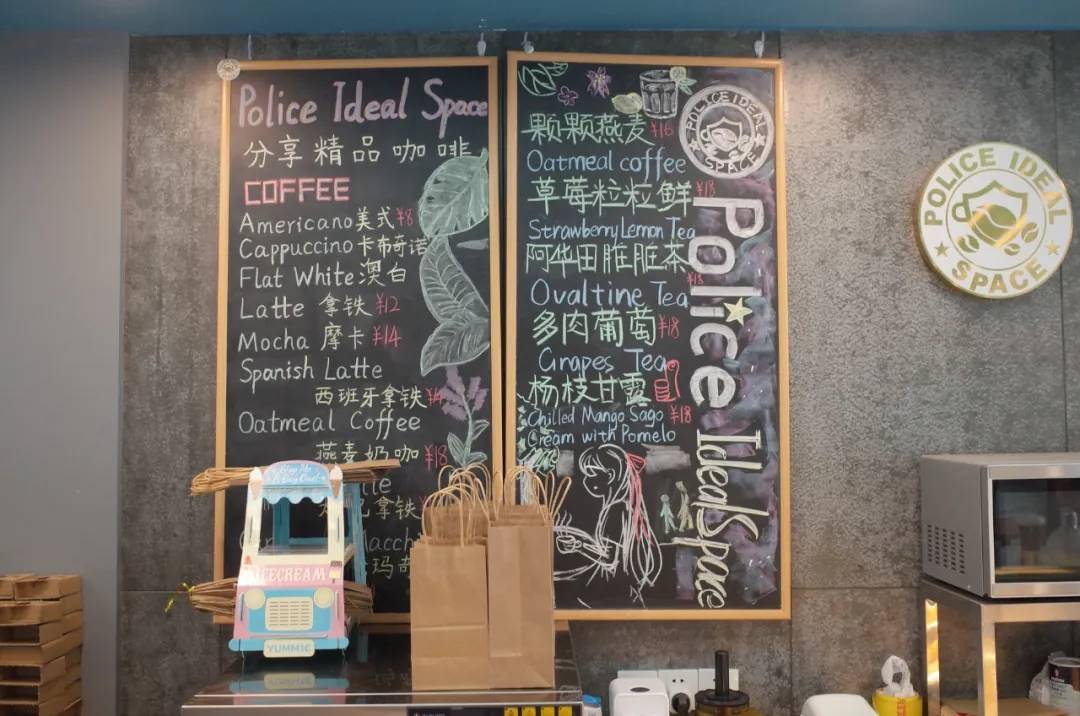 Police Ideal Space
分享精品咖啡
COFFEE
Americano美式¥8
Cappuccino卡布奇诺
Flat White澳白
Latte 拿铁¥12
Mocha 摩卡¥14
Spanish Latte
西班牙拿铁
Oatmeal Coffee
燕麦奶咖¥18
拿铁
颗颗燕麦¥16
Oatmeal coffee
草莓粒粒鲜¥18
Strawberry Lemon Tea
阿华田脏脏茶
¥18
Ovaltine Tea
多肉葡萄¥18
Grapes Tea
杨枝甘露
Chilled Mango Sago ¥18
Cream with Pomelo
POLICE IDEAL
SPACE
Police Ideal Space
POLICE IDEAL
SPACE
ICECREAM
YUMMIE